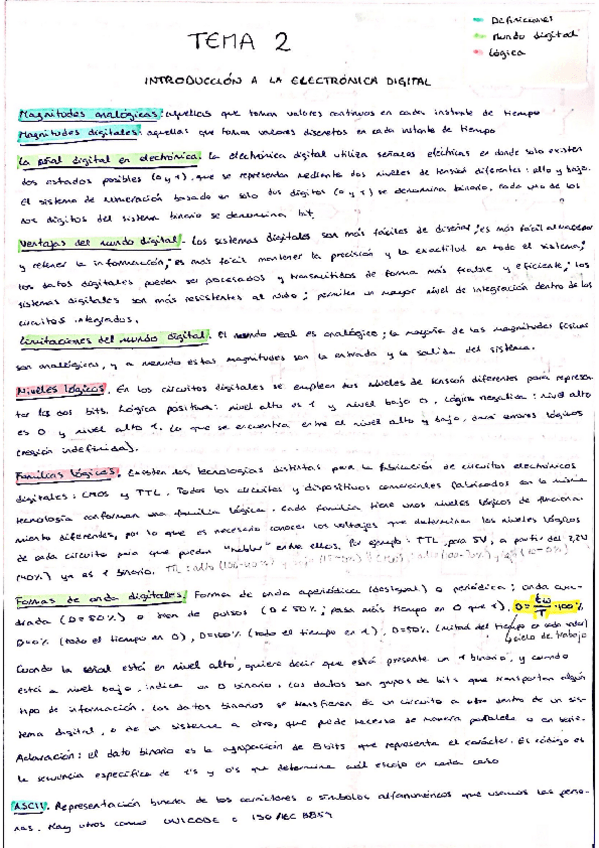 TEMA 2
Definiciones
Mundo digital
Lógica
INTRODUCCIÓN A LA ELECTRÓNICA DIGITAL
Magnitudes analógicas: aquellas que toman valores continuos en cada instante de tiempo
Magnitudes digitales: aquellas que toman valores discretos en cada instante de tiempo
La señal digital en electrónica. La electrónica digital utiliza señales eléctricas en donde solo existen
dos estados posibles (0 y 1), que se representan mediante dos niveles de tensión diferentes: alto y bajo.
El sistema de numeración basado en solo dos dígitos (0 y 1) se denomina binario, cada uno de los
dos dígitos del sistema binario se denomina bit.
Ventajas del mundo digital. Los sistemas digitales son más fáciles de diseñar; es más fácil almacenar
y retener la información; es más fácil mantener la precisión y la exactitud en todo el sistema;
los datos digitales pueden ser procesados y transmitidos de forma más fiable y eficiente; los
sistemas digitales son más resistentes al ruido; permiten un mayor nivel de integración dentro de los
circuitos integrados.
Limitaciones del mundo digital. El mundo real es analógico; la mayoría de las magnitudes físicas
son analógicas, y a menudo estas magnitudes son la entrada y la salida del sistema.
Niveles lógicos. En los circuitos digitales se emplean dos niveles de tensión diferentes para represen-
tar los dos bits. Lógica positiva: nivel alto es 1 y nivel bajo es 0. Lógica negativa: nivel alto
es 0 y nivel alto 1. Lo que se encuentra entre el nivel alto y bajo, dará errores lógicos
(región indefinida).
Familias lógicas. Existen dos tecnologías distintas para la fabricación de circuitos electrónicos
digitales: CMOS y TTL. Todos los circuitos y dispositivos comerciales fabricados en la misma
tecnología conforman una familia lógica. Cada familia tiene unos niveles lógicos de funciona-
miento diferentes, por lo que es necesario conocer los voltajes que determinan los niveles lógicos
de cada circuito para que puedan "hablar" entre ellos. Por ejemplo: TTL, para 5V, a partir del 2,2V
(40%) ya es 1 binario.
Formas de onda digitales. Forma de onda aperiódica (desigual) o periódica; onda cua-
drada (D=50%) o bien de pulsos (D<50%; pasa más tiempo en 0 que 1). D = tω/T · 100%
D=0% (todo el tiempo en 0), D=100% (todo el tiempo en 1), D=50% (mitad del tiempo a cada valor)
ciclo de trabajo
Cuando la señal está en nivel alto, quiere decir que está presente un 1 binario, y cuando
está a nivel bajo, indica un 0 binario. Los datos son grupos de bits que transportan algún
tipo de información. Los datos binarios se transfieren de un circuito a otro dentro de un sis-
tema digital, o de un sistema a otro, que puede hacerse de manera paralela o en serie.
Aclaración: el dato binario es la agrupación de 8 bits que representa el carácter. El código es
la secuencia específica de 1's y 0's que determina cuál escojo en cada caso
ASCII. Representación binaria de los caracteres o símbolos alfanuméricos que usamos las perso-
nas. Hay otros como UNICODE o ISO/IEC 8859